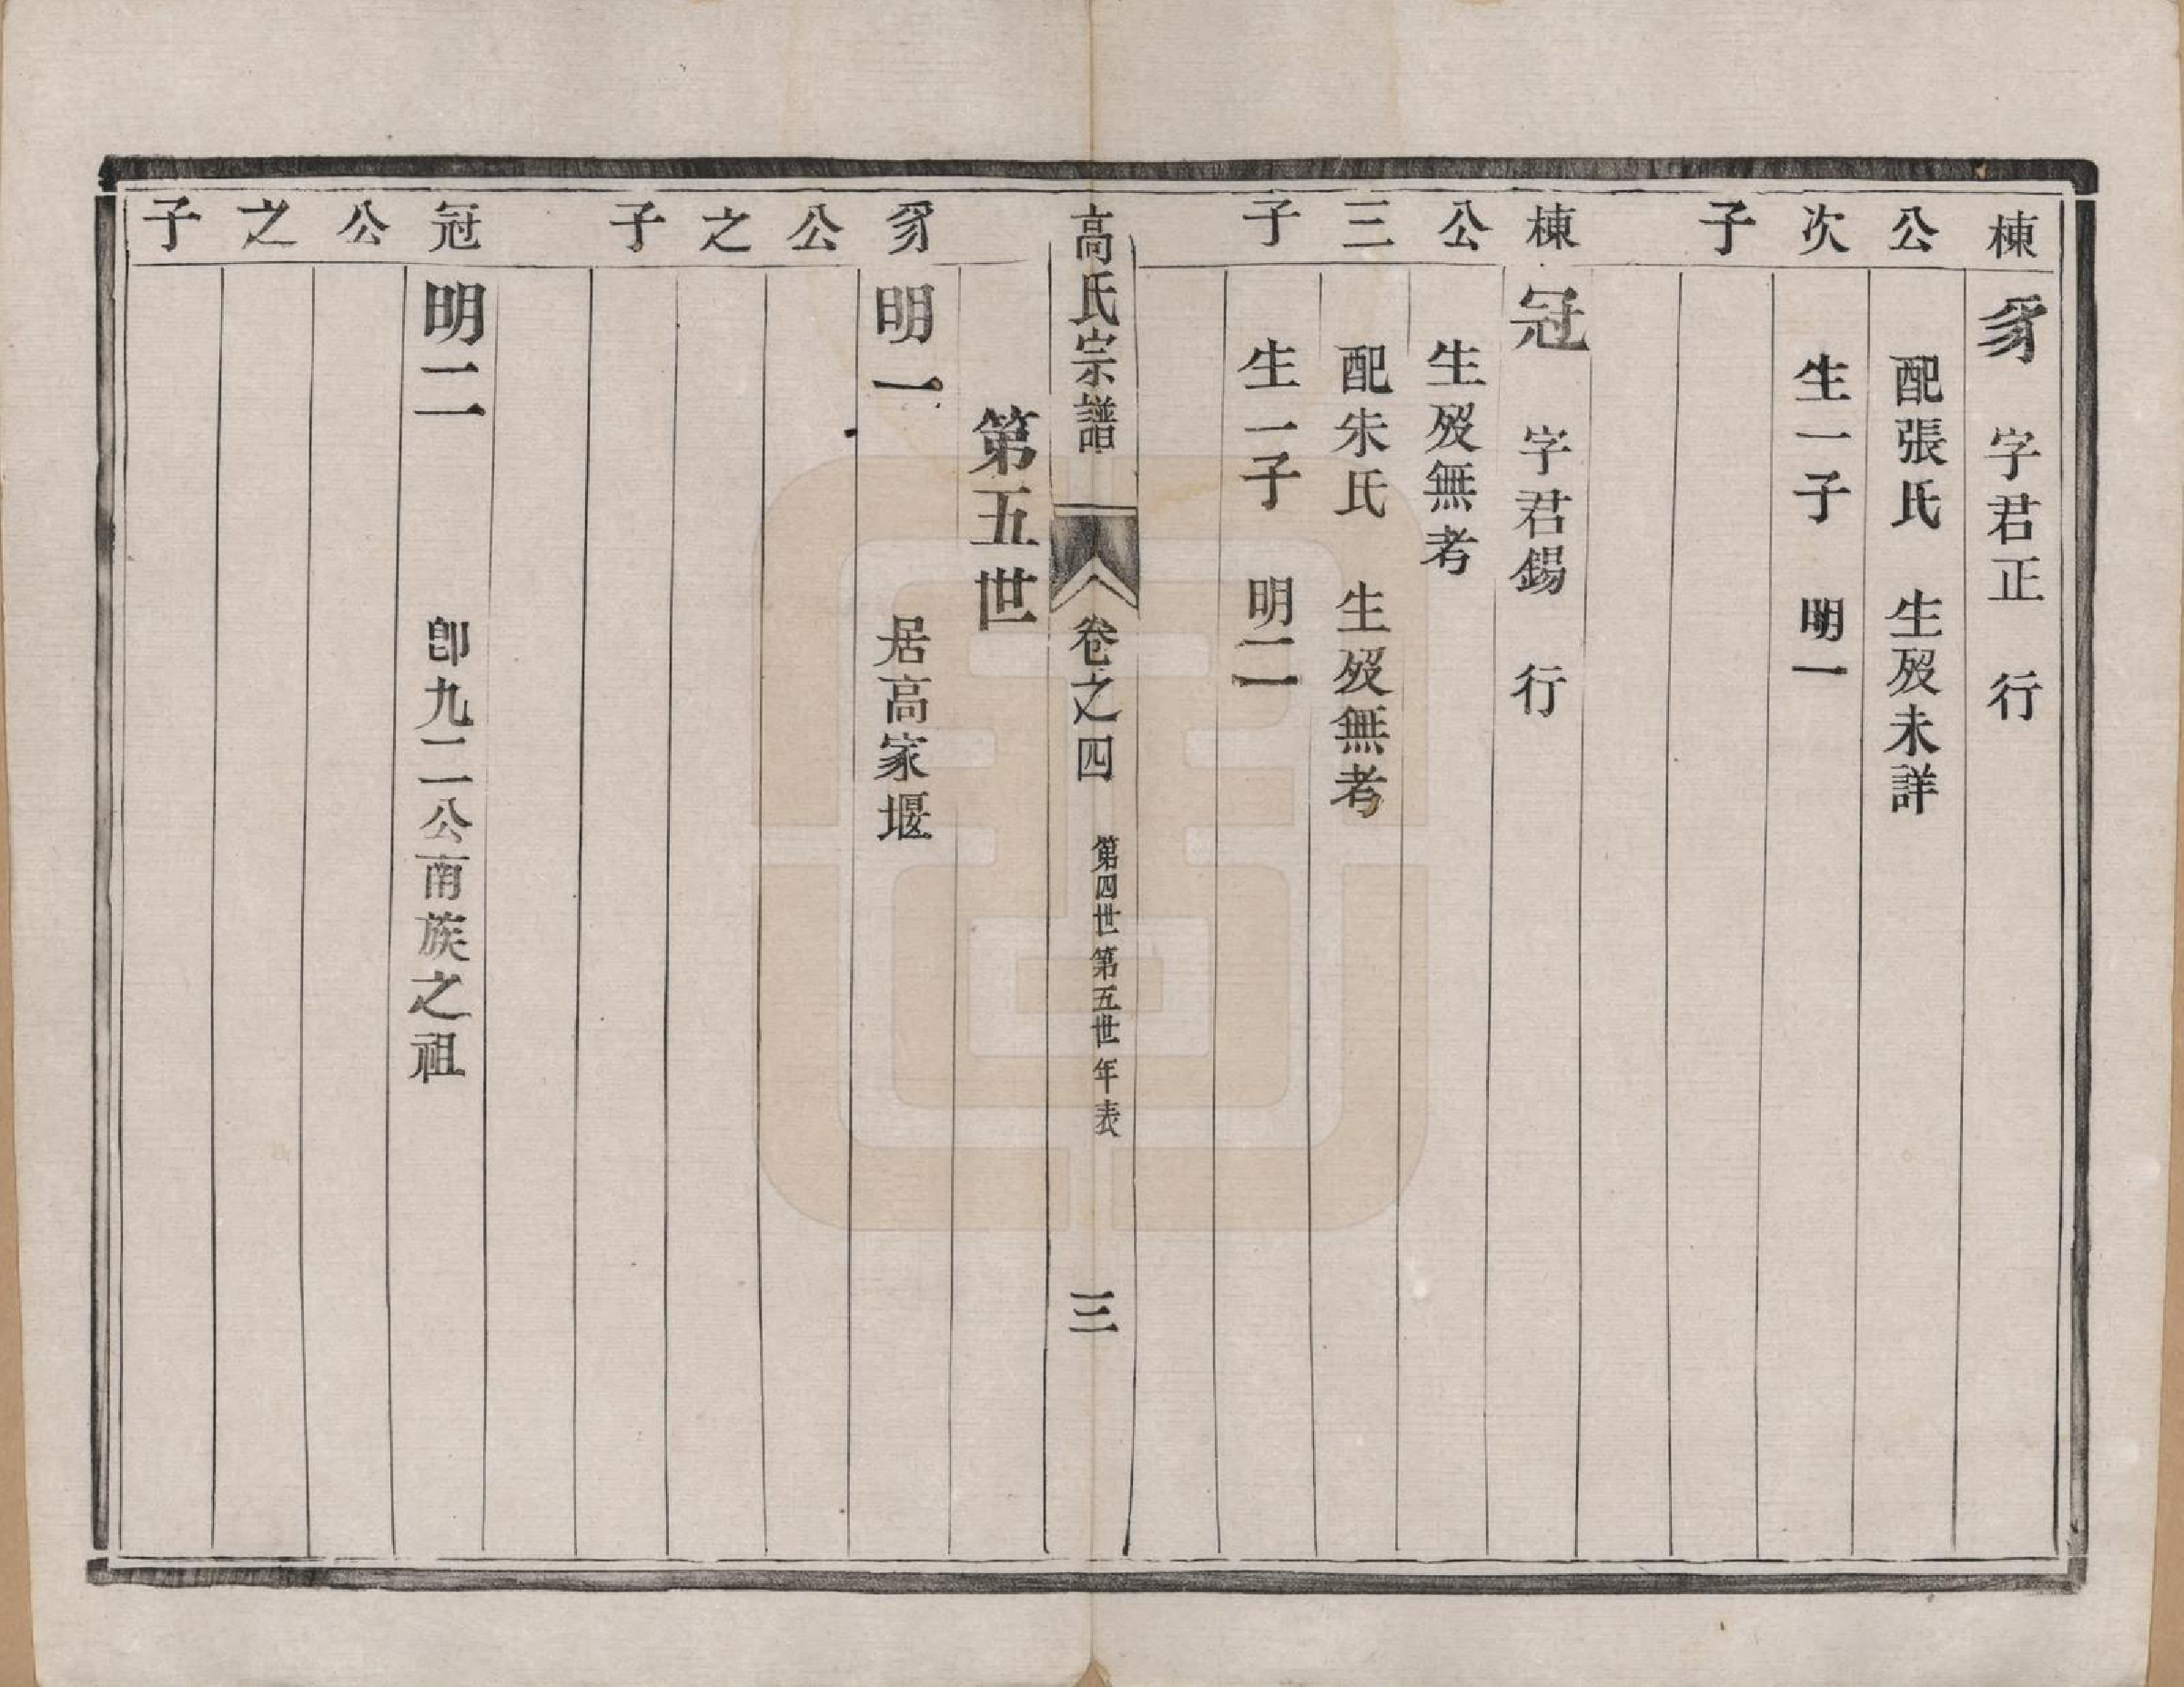 棟公次子
豸 字君正 行
配張氏 生歿未詳
生一子 明一
棟公三子
冠 字君錫 行
生歿無考
配朱氏 生歿無考
生一子 明二
高氏宗譜 卷之四 第四世第五世年表 三
第五世
豸公之子
明一 居高家堰
冠公之子
明二 卽九二公南族之祖